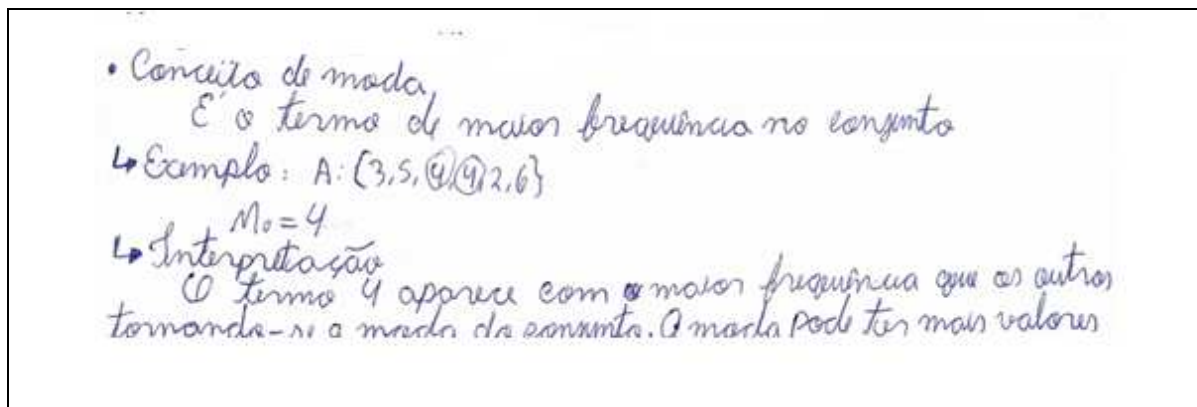 • Conceito de moda
É o termo de maior frequência no conjunto
↳ Exemplo: A: {3,5,4,4,2,6}
Mo = 4
↳ Interpretação
O termo 4 aparece com a maior frequência que os outros
tornando-se a moda do conjunto. A moda pode ter mais valores